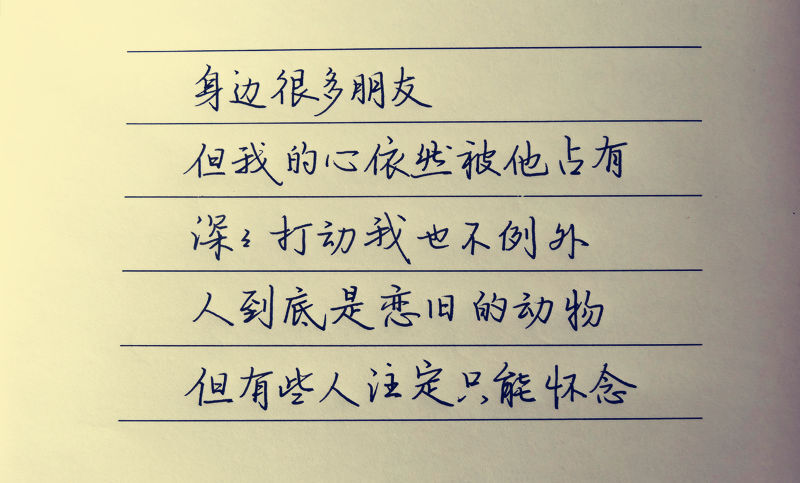 身边很多朋友
但我的心依然被他占有
深々打动我也不例外
人到底是恋旧的动物
但有些人注定只能怀念